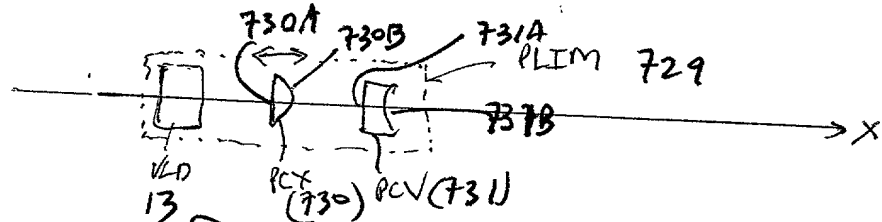 730A
730B
731A
PLIM 729
731B
X
VLD
13
PCX
(730)
PCV (731)